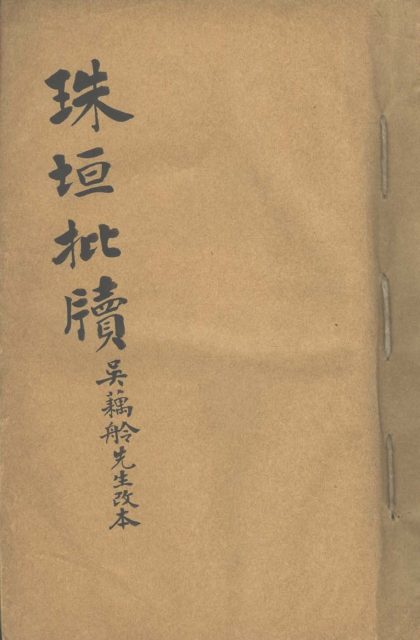 珠垣批牘
吳藕舲先生改本